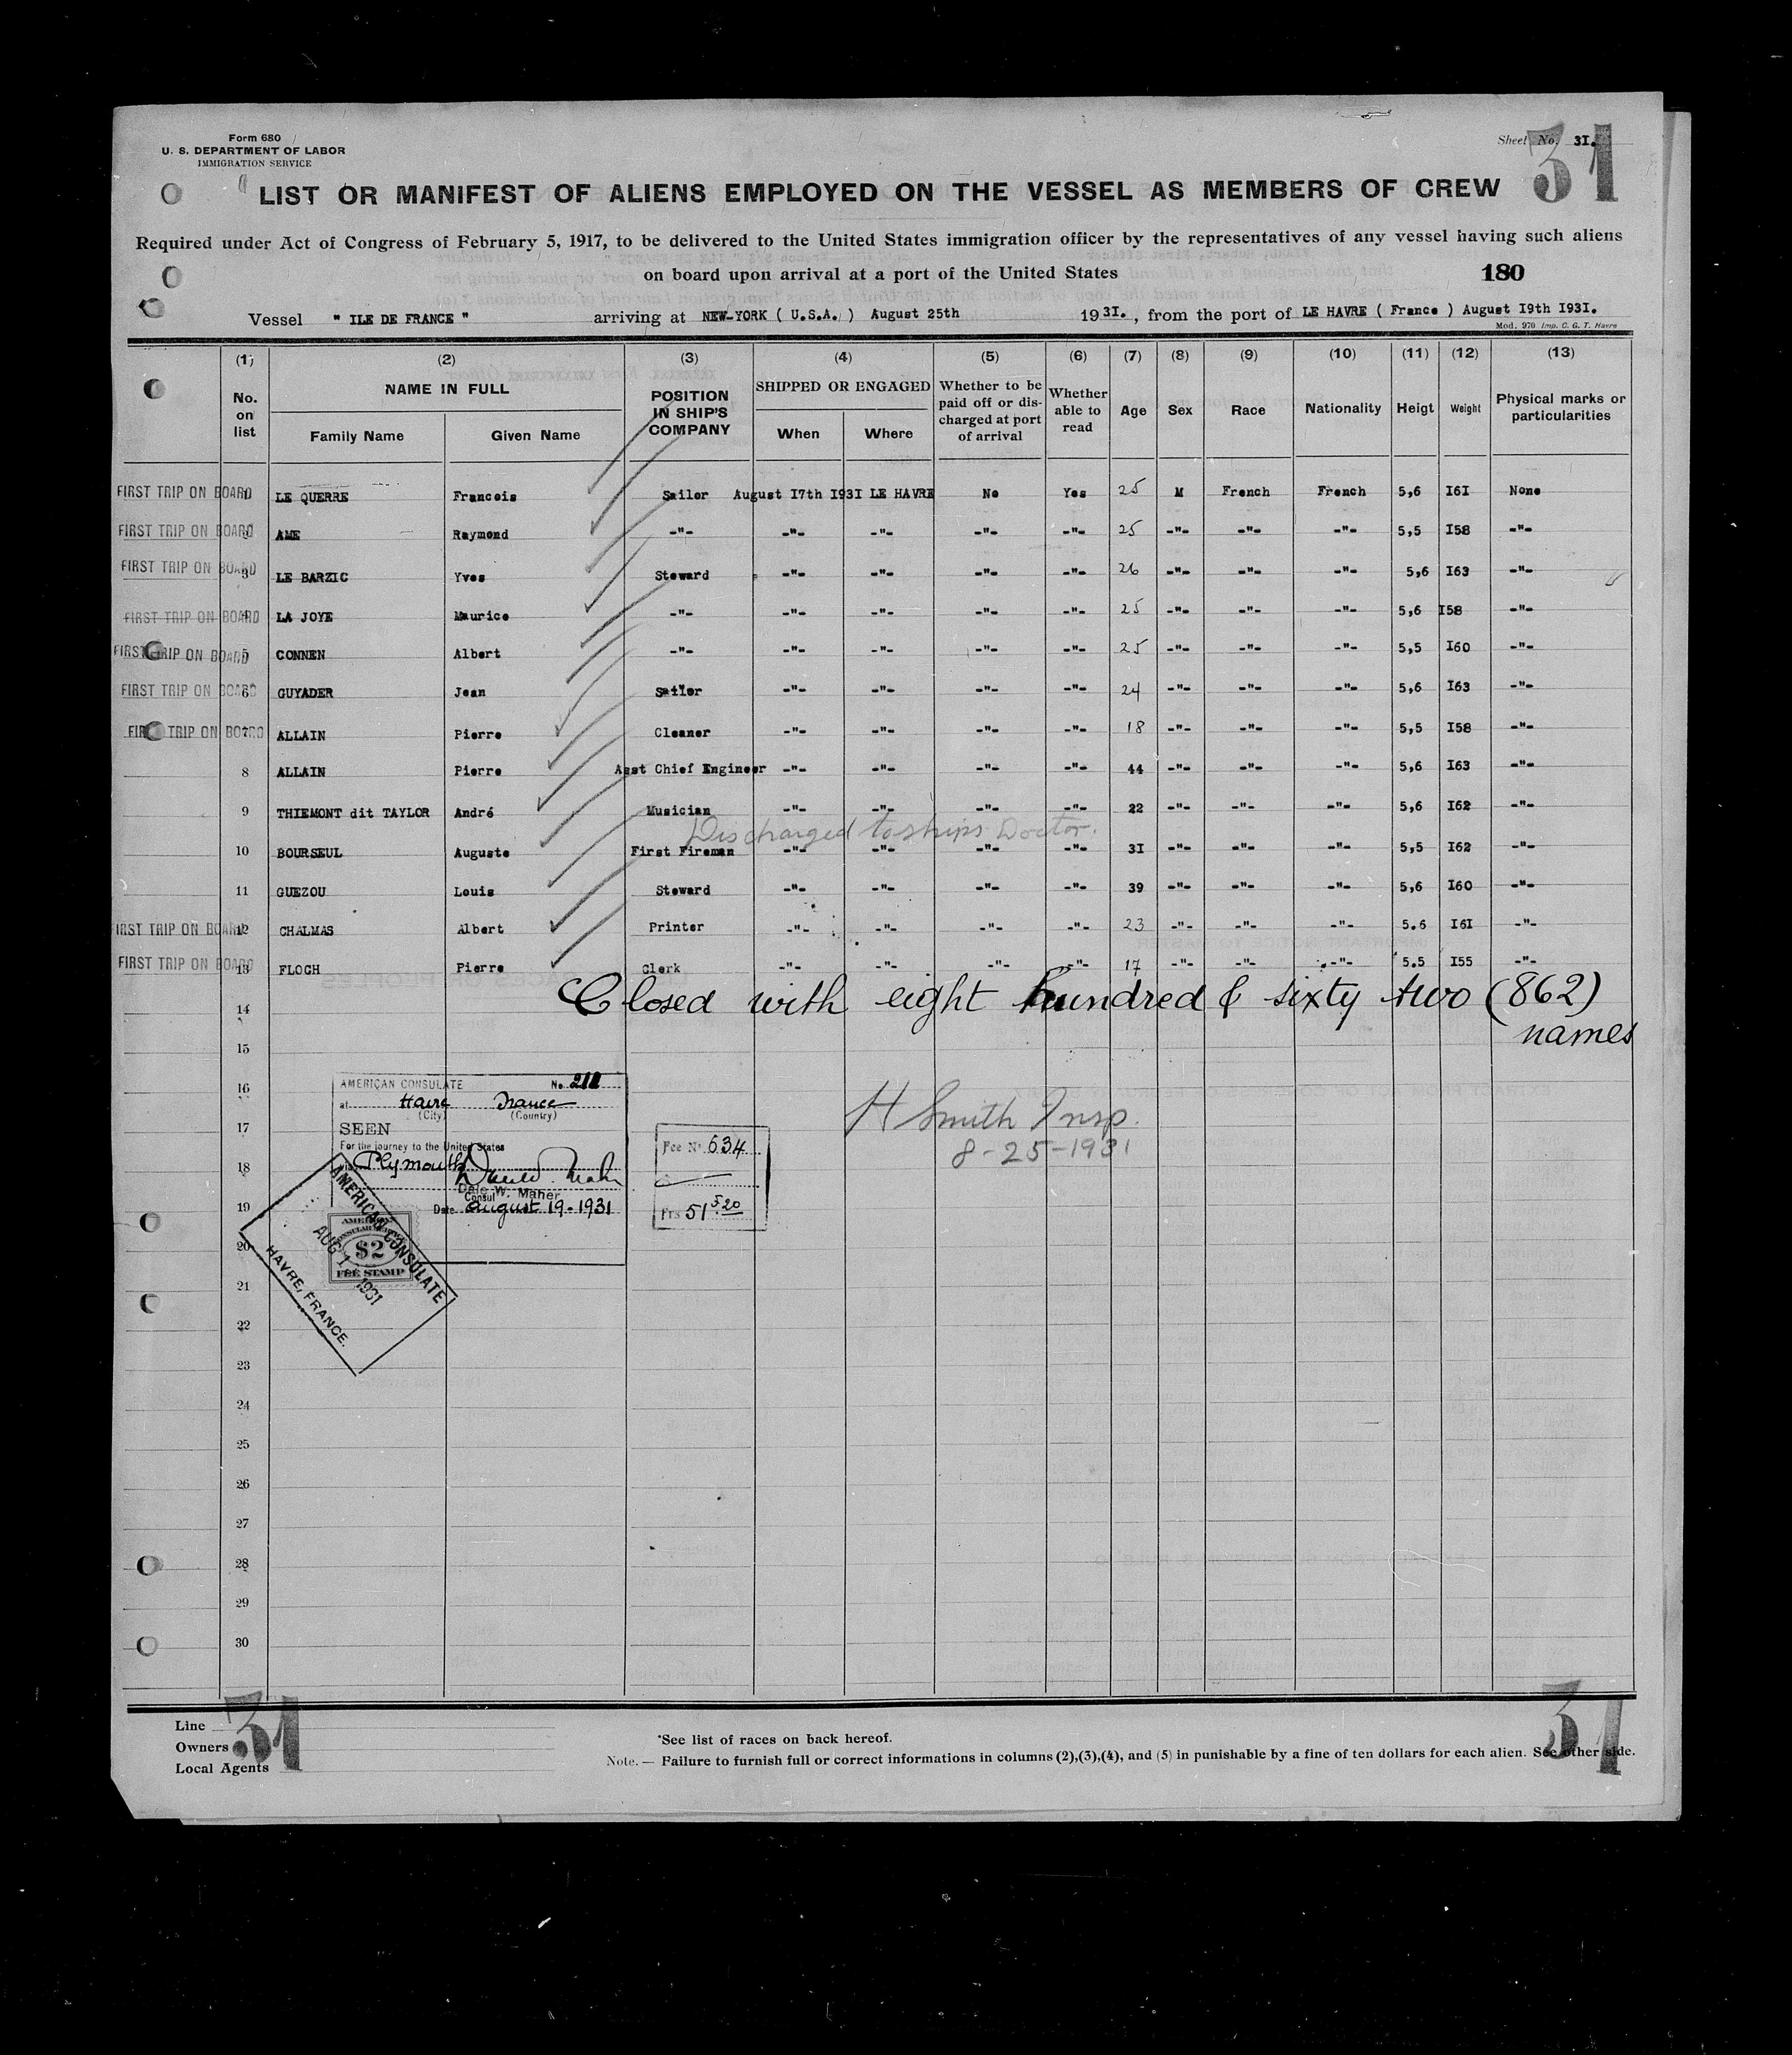 Form 680
U. S. DEPARTMENT OF LABOR
IMMIGRATION SERVICE
Sheet No. 3I.
31
LIST OR MANIFEST OF ALIENS EMPLOYED ON THE VESSEL AS MEMBERS OF CREW
Required under Act of Congress of February 5, 1917, to be delivered to the United States immigration officer by the representatives of any vessel having such aliens
on board upon arrival at a port of the United States
180
Vessel " ILE DE FRANCE " arriving at NEW-YORK ( U.S.A. ) August 25th 1931. , from the port of LE HAVRE ( France ) August I9th I93I.
Mod. 970 Imp. C. G. T. Havre
(1) (2) (3) (4) (5) (6) (7) (8) (9) (10) (11) (12) (13)
No. on list NAME IN FULL Family Name Given Name POSITION IN SHIP'S COMPANY SHIPPED OR ENGAGED When Where Whether to be paid off or discharged at port of arrival Whether able to read Age Sex Race Nationality Heigt Weight Physical marks or particularities
FIRST TRIP ON BOARD LE QUERRE Francois Sailor August I7th I93I LE HAVRE No Yes 25 M French French 5,6 I6I None
FIRST TRIP ON BOARD AME Raymond -"- -"- -"- -"- -"- 25 -"- -"- -"- 5,5 I58 -"-
FIRST TRIP ON BOARD 3 LE BARZIC Yves Steward -"- -"- -"- -"- 26 -"- -"- -"- 5,6 I63 -"-
FIRST TRIP ON BOARD 4 LA JOYE Maurice -"- -"- -"- -"- -"- 25 -"- -"- -"- 5,6 I58 -"-
FIRST TRIP ON BOARD 5 CONNEN Albert -"- -"- -"- -"- -"- 25 -"- -"- -"- 5,5 I60 -"-
FIRST TRIP ON BOARD 6 GUYADER Jean Sailor -"- -"- -"- -"- 24 -"- -"- -"- 5,6 I63 -"-
FIRST TRIP ON BOARD 7 ALLAIN Pierre Cleaner -"- -"- -"- -"- 18 -"- -"- -"- 5,5 I58 -"-
8 ALLAIN Pierre Asst Chief Engineer -"- -"- -"- -"- 44 -"- -"- -"- 5,6 I63 -"-
9 THIEMONT dit TAYLOR André Musician -"- -"- -"- -"- 22 -"- -"- -"- 5,6 I62 -"-
Discharged to ships Doctor.
10 BOURSEUL Auguste First Fireman -"- -"- -"- -"- 3I -"- -"- -"- 5,5 I62 -"-
11 GUEZOU Louis Steward -"- -"- -"- -"- 39 -"- -"- -"- 5,6 I60 -"-
FIRST TRIP ON BOARD 12 CHALMAS Albert Printer -"- -"- -"- -"- 23 -"- -"- -"- 5.6 I6I -"-
FIRST TRIP ON BOARD 13 FLOCH Pierre Clerk -"- -"- -"- -"- 17 -"- -"- -"- 5.5 I55 -"-
Closed with eight hundred & sixty two (862)
names
14
15
16
17
18
19
20
21
22
23
24
25
26
27
28
29
30
AMERICAN CONSULATE No. 211
at Havre France
(City) (Country)
SEEN
For the journey to the United States
Plymouth
Dale W. Maher
Consul
Date August 19-1931
Fee No 634
Frs 51 F.20
H Smith Insp.
8-25-1931
AMERICAN CONSULATE
AUG 1 1931
HAVRE, FRANCE.
$2
FEE STAMP
Line
Owners
Local Agents
31
*See list of races on back hereof.
Note. — Failure to furnish full or correct informations in columns (2),(3),(4), and (5) in punishable by a fine of ten dollars for each alien. See other side.
31